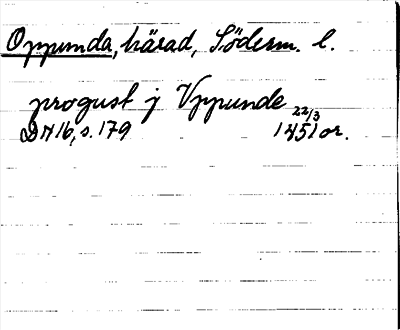 Oppunda, härad, Söderm. l.
progust j Vppunde
DN 16, s. 179 22/3 1451 or.